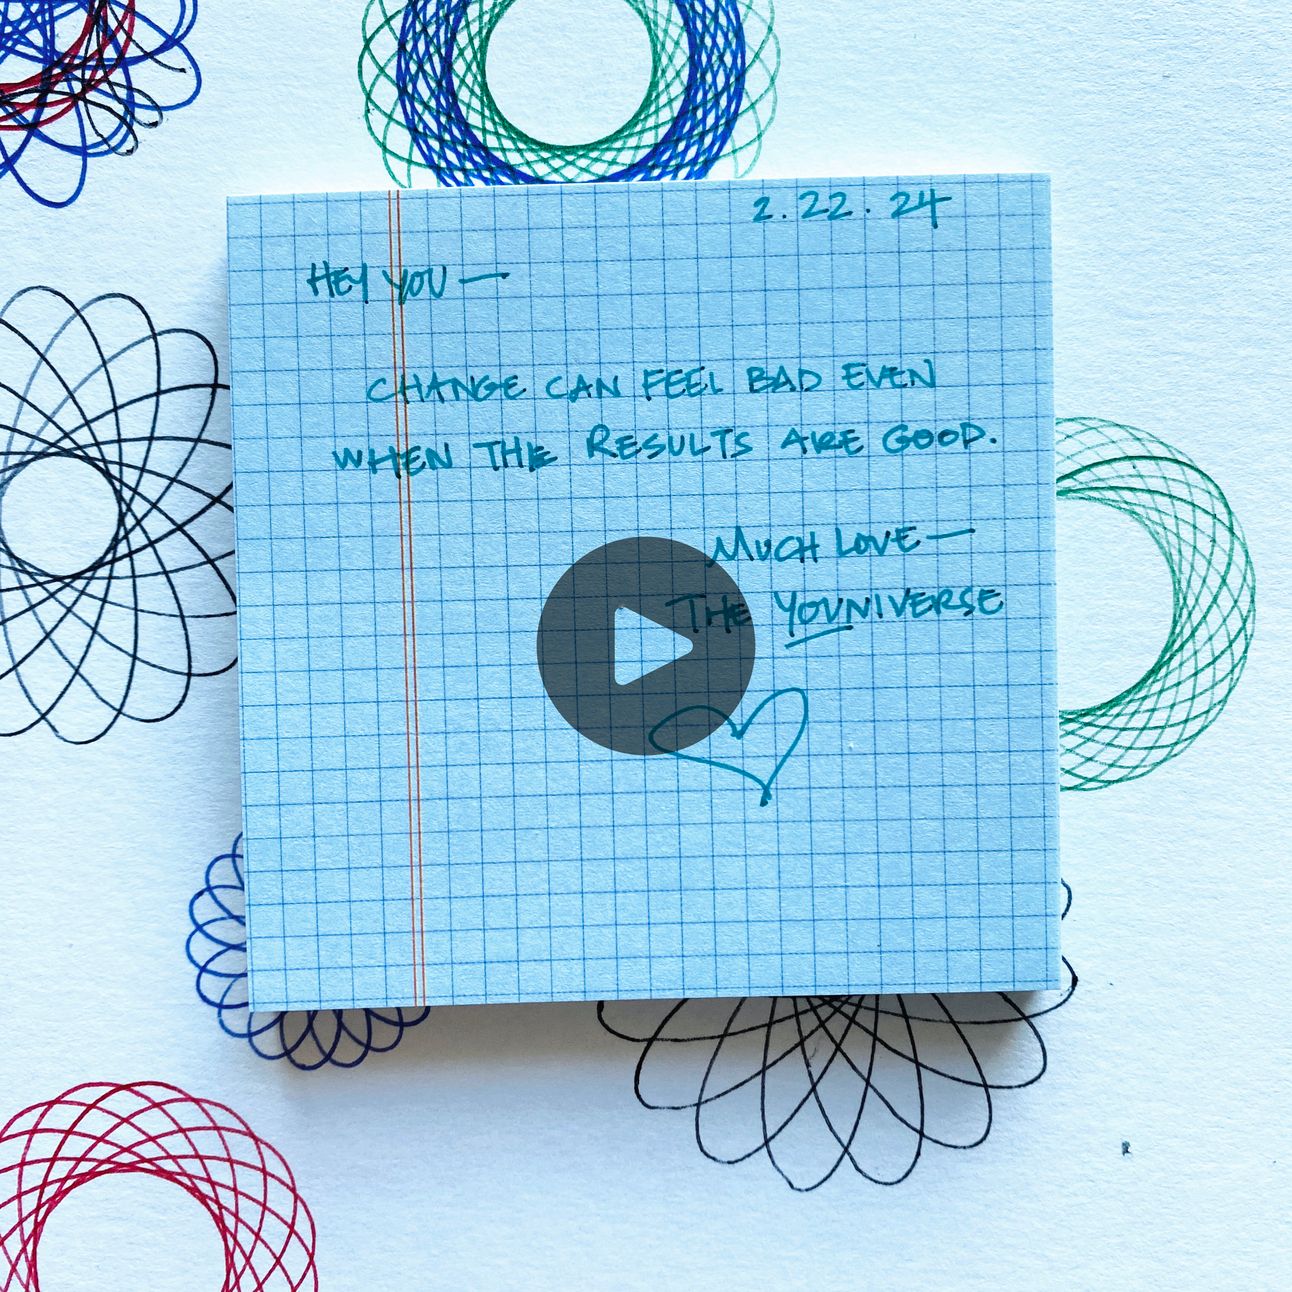 2.22.24
HEY YOU —
CHANGE CAN FEEL BAD EVEN
WHEN THE RESULTS ARE GOOD.
MUCH LOVE —
THE YOUNIVERSE